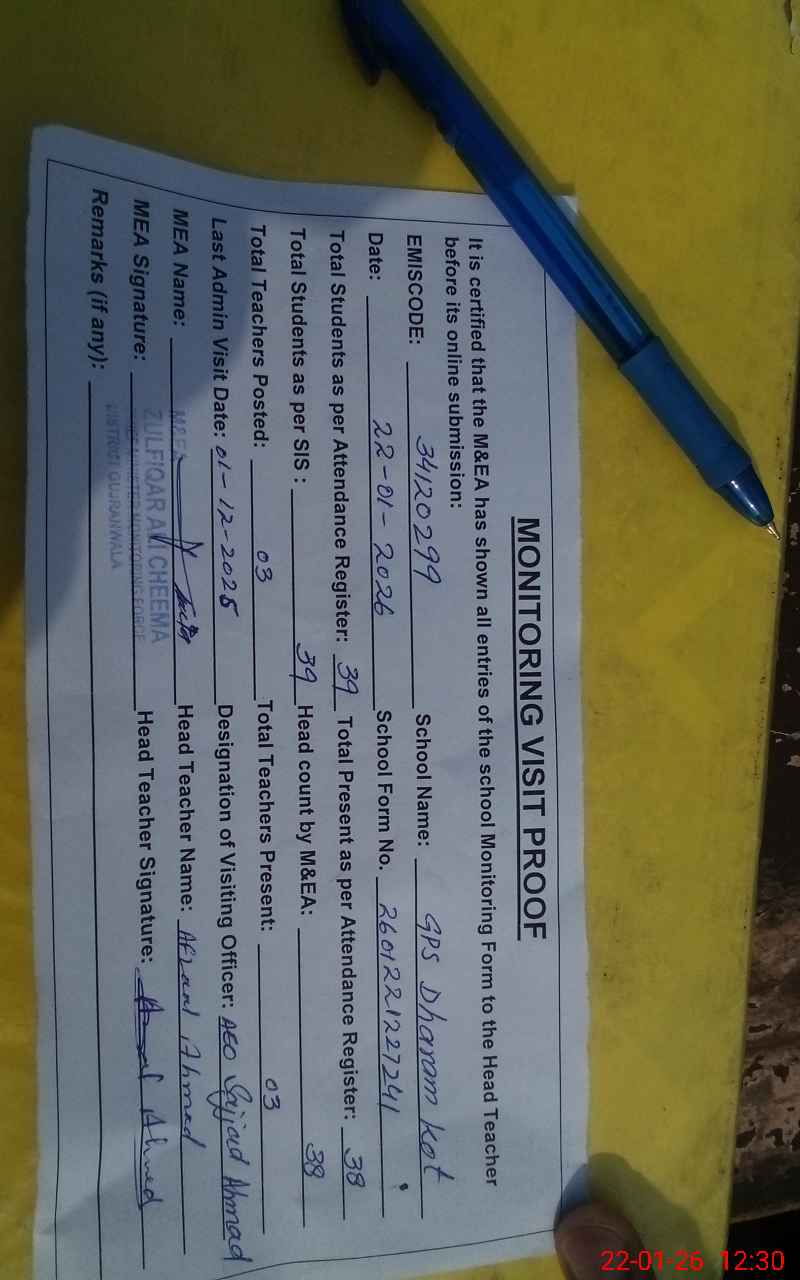 MONITORING VISIT PROOF
It is certified that the M&EA has shown all entries of the school Monitoring Form to the Head Teacher
before its online submission:
EMISCODE: 34120299 School Name: GPS Dharam Kot
Date: 22-01-2026 School Form No. 2601221227241
Total Students as per Attendance Register: 39 Total Present as per Attendance Register: 38
Total Students as per SIS : 39 Head count by M&EA: 38
Total Teachers Posted: 03 Total Teachers Present: 03
Last Admin Visit Date: 01-12-2025 Designation of Visiting Officer: AEO Sajjad Ahmad
MEA Name: Head Teacher Name: Afzaal Ahmad
MEA Signature: Head Teacher Signature: Ahmed
M&EA
ZULFIQAR ALI CHEEMA
MONITORING FORCE
DISTRICT GUJRANWALA
Remarks (if any):
22-01-26 12:30